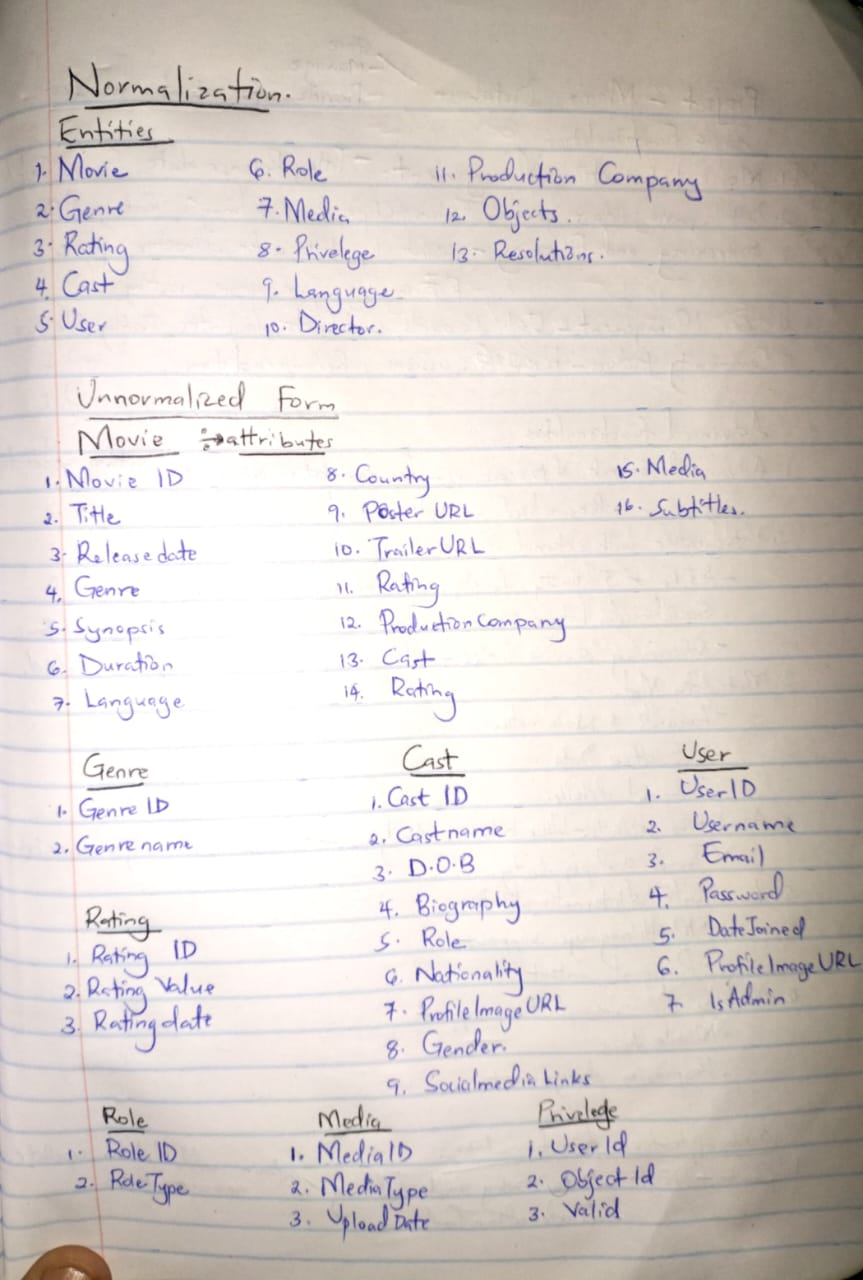 Normalization.
Entities
1. Movie
2. Genre
3. Rating
4. Cast
5. User
6. Role
7. Media
8. Privelege
9. Language
10. Director.
11. Production Company
12. Objects.
13. Resolutions.
Unnormalized Form
Movie → attributes
1. Movie ID
2. Title
3. Release date
4. Genre
5. Synopsis
6. Duration
7. Language
8. Country
9. Poster URL
10. Trailer URL
11. Rating
12. Production Company
13. Cast
14. Rating
15. Media
16. Subtitles.
Genre
1. Genre ID
2. Genre name
Rating
1. Rating ID
2. Rating Value
3. Rating date
Cast
1. Cast ID
2. Cast name
3. D.O.B
4. Biography
5. Role
6. Nationality
7. Profile Image URL
8. Gender.
9. Socialmedia Links
User
1. User ID
2. Username
3. Email
4. Password
5. Date Joined
6. Profile Image URL
7. Is Admin
Role
1. Role ID
2. Role Type
Media
1. Media ID
2. Media Type
3. Upload Date
Privelege
1. User Id
2. Object Id
3. Valid